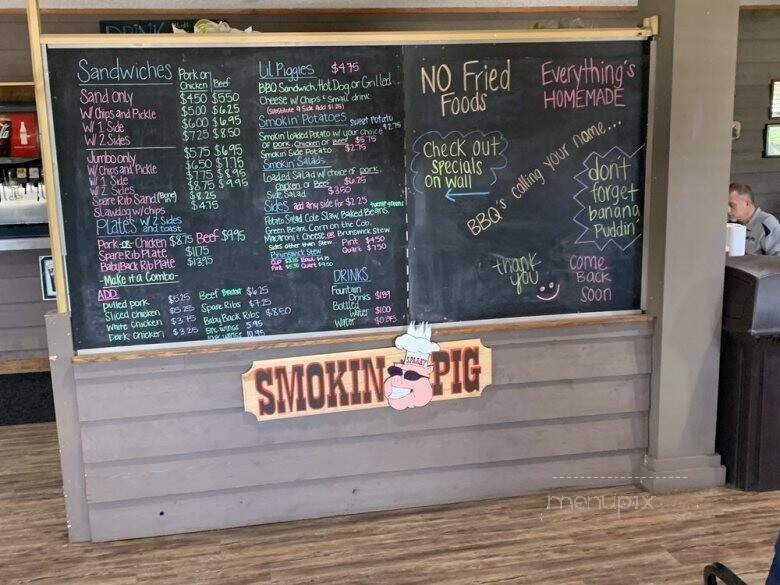 Sandwiches Pork or Chicken Beef
Sand only $4.50 $5.50
W/ Chips and Pickle $5.00 $6.25
W/ 1 Side $6.00 $6.95
W/ 2 Sides $7.25 $8.50
Jumbo only $5.75 $6.95
W/ Chips and Pickle $6.50 $7.75
W/ 1 Side $7.75
W/ 2 Sides $8.75 $9.95
Spare Rib Sand (Bone) $8.25
Slawdog w/ Chips $4.75
Plates W/ 2 Sides and toast
Pork or Chicken $8.75 Beef $9.95
Spare Rib Plate $11.75
Baby Back Rib Plate $13.95
Make it a Combo
ADD:
pulled pork $5.25
Sliced chicken $5.25
White chicken $3.75
Dark chicken $3.25
Beef Brisket $6.25
Spare Ribs $7.25
Baby Back Ribs $8.50
5pc wings 5.95
10pc wings 10.95
Lil Piggies $4.75
BBQ Sandwich, Hot Dog or Grilled
Cheese w/ Chips & Small drink
(Substitute a Side Add $1.25)
Smokin Potatoes Sweet Potato $2.75
Smokin Loaded Potato w/ your choice
of pork, Chicken or Beef $5.75
Smokin Side Potato $2.75
Smokin Salads
Loaded Salad w/ choice of pork,
Chicken or Beef $6.25
Side Salad $3.50
Sides add any side for $2.25
Potato Salad, Cole Slaw, Baked Beans,
Green Beans, Corn on the Cob,
Macaroni & Cheese or Brunswick Stew
Sides other than Stew Pint $4.50
Quart $7.50
Brunswick Stew
DRINKS
Fountain Drinks $1.99
Bottled Water $1.00
Water
NO Fried
Foods
Everything's
HOMEMADE
Check out
Specials
on wall
BBQ's calling your name...
don't
forget
banana
Puddin
thank
you
Come
Back
Soon
SMOKIN PIG
menupix